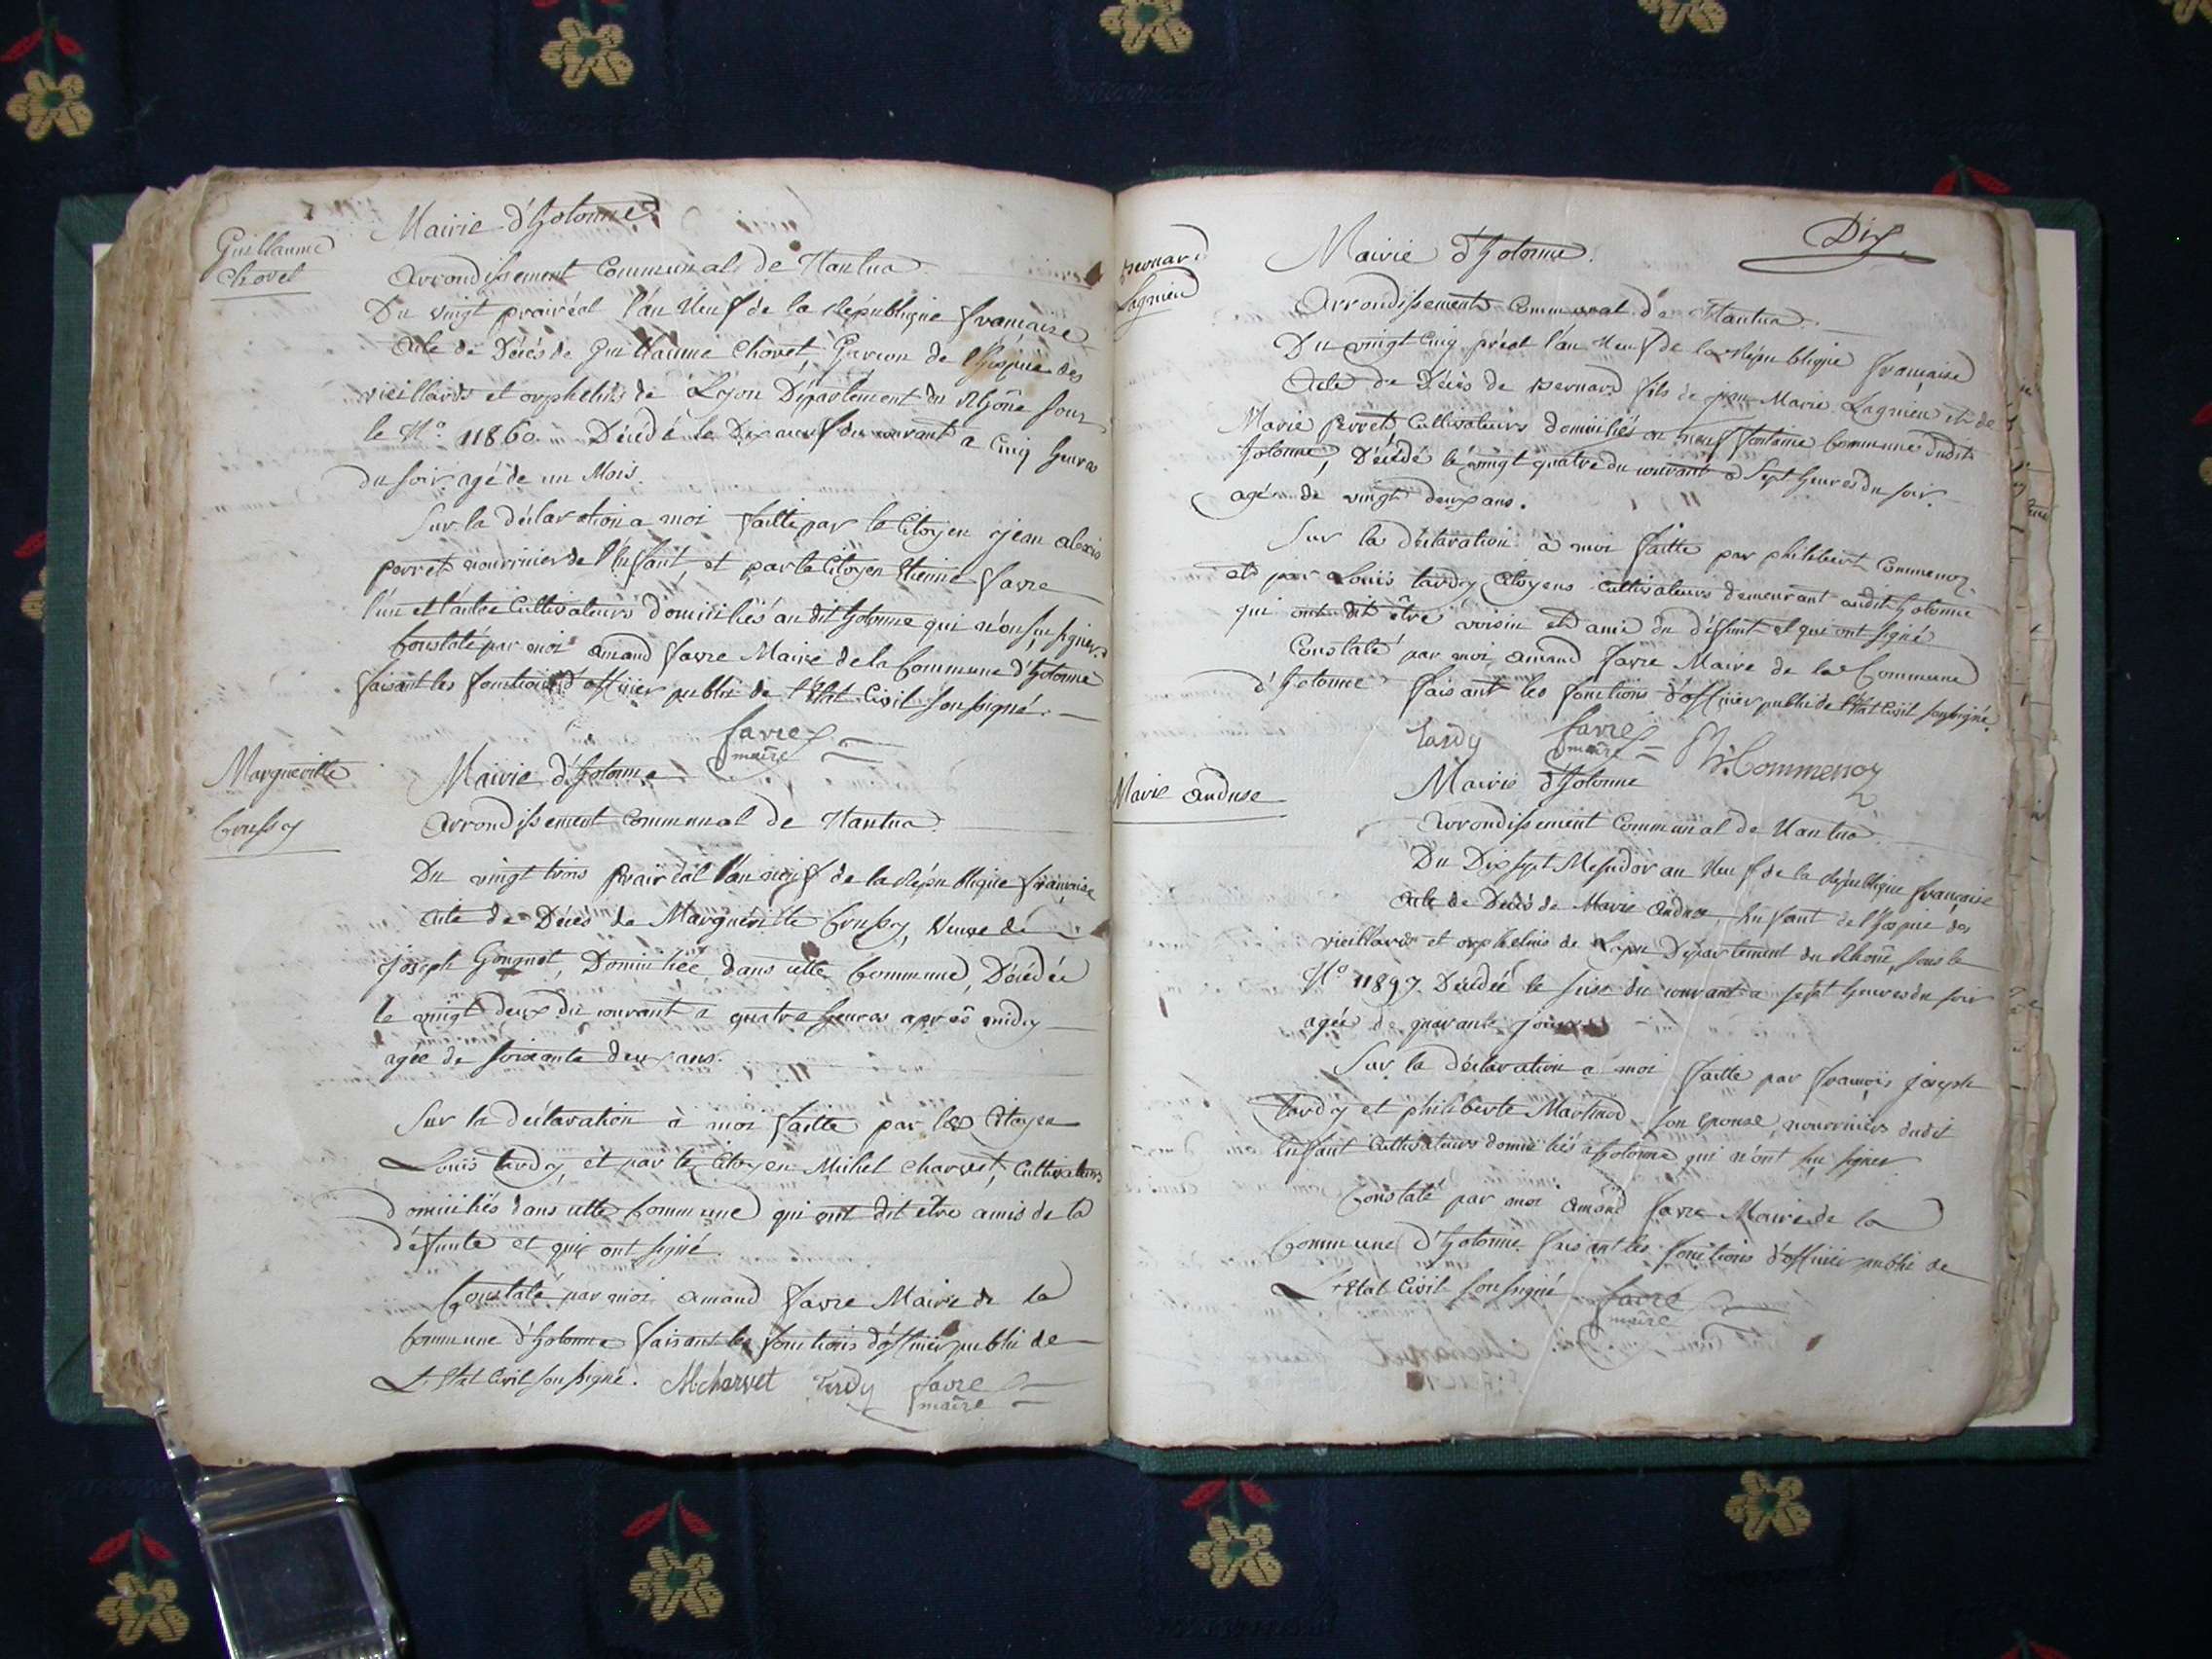 Guillaume
Chovet
Mairie d'hotonne
Arrondissement Communal de Nantua
Du vingt prairéal l'an Neuf de la République française
Acte de Décés de Guillaume Chovet, Garçon de l'hospice des
vieillards et orphelins de Lyon Département du Rhône sous
le N.º 11860. Décédé le Dix neuf du courant a Cinq heures
du soir agé de un Mois.
Sur la déclaration a moi faitte par le Citoyen jean alexis
perret nourricier de l'Enfant, et par le Citoyen Etienne favre
l'un et l'autre Cultivateurs domiciliés au dit hotonne qui n'ont su signer.
Constaté par moi amand favre Maire de la Commune d'hotonne
faisant les fonctions d'officier public de l'Etat Civil soussigné.
favre
maire
Margueritte
Crussy
Mairie d'hotonne
Arrondissement Communal de Nantua
Du vingt trois prairéal l'an neuf de la République française
acte de Décés de Marguéritte Crussy, Veuve de
joseph Gougnot, Domiciliée dans cette Commune, Décédée
le vingt deux du courant a quatre heures après midy
agée de soixante deux ans.
Sur la déclaration à moi faitte par le Citoyen
Louis tardy, et par le Citoyen Michel charvet, Cultivateurs
domiciliés dans cette Commune qui ont dit être amis de la
défunte et qui ont signé.
Constaté par moi amand favre Maire de la
Commune d'hotonne faisant les fonctions d'officier public de
L'Etat Civil soussigné. M charvet tardy favre
maire
Dix
Bernard
Lagnieu
Mairie d'hotonne.
Arrondissement Communal de Nantua.
Du vingt Cinq préal l'an Neuf de la République française
Acte de Décès de Bernard fils de jean Marie Lagnieu et de
Marie perret, Cultivateurs domiciliés en neuf fontaine Commune dudit
hotonne, Décédé le vingt quatre du courant a sept heures du soir
agé de vingt deux ans.
Sur la déclaration à moi faitte par philibert Commenoz
et par Louis tardy Citoyens Cultivateurs demeurant audit hotonne
qui ont dit être voisin et ami du défunt et qui ont signé
Constaté par moi amand favre Maire de la Commune
d'hotonne faisant les fonctions d'officier public de l'Etat Civil soussigné.
tardy favre Ph. Commenoz
maire
Marie anduse
Mairie d'hotonne
Arrondissement Communal de Nantua
Du Dix sept Messidor an Neuf de la République française
acte de Décés de Marie anduse, Enfant de l'hospice des
vieillards et orphelins de Lyon Département du Rhône, sous le
N.º 11897. Décédée le seize du courant a sept heures du soir
agée de quarante jours
Sur la déclaration a moi faitte par françois joseph
tardy et philiberte Martinod son épouse, nourriciers dudit
Enfant Cultivateurs domiciliés a hotonne qui n'ont su signer
Constaté par moi amand favre Maire de la
Commune d'hotonne faisant les fonctions d'officier public de
L'Etat Civil soussigné favre
maire